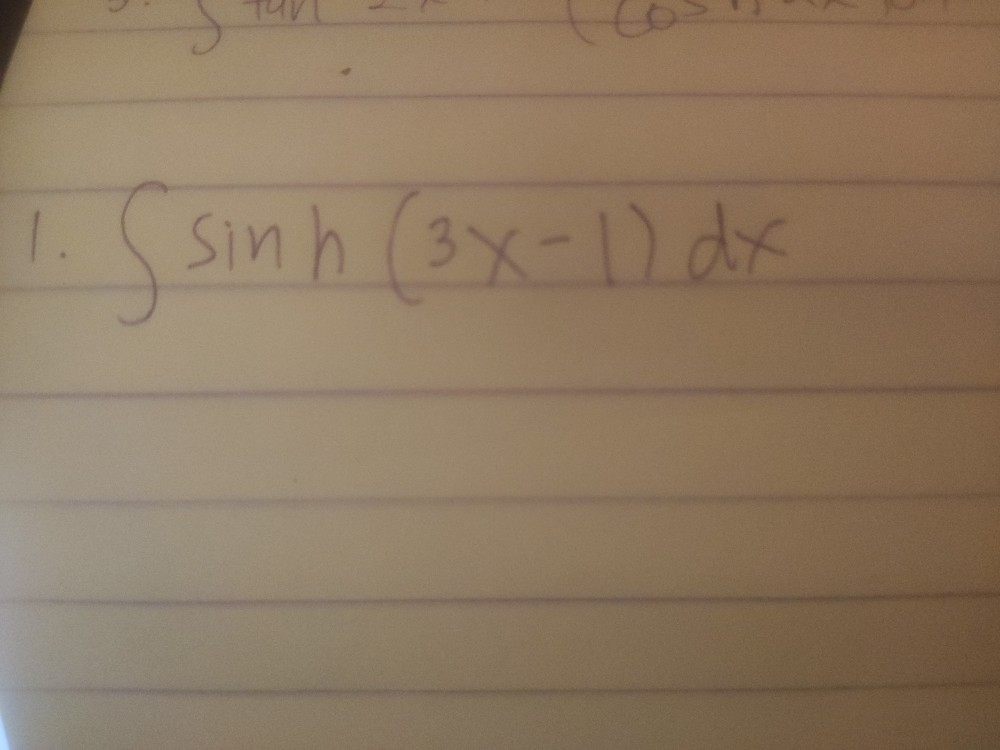 ∫ tan
1. ∫ sinh (3x-1) dx